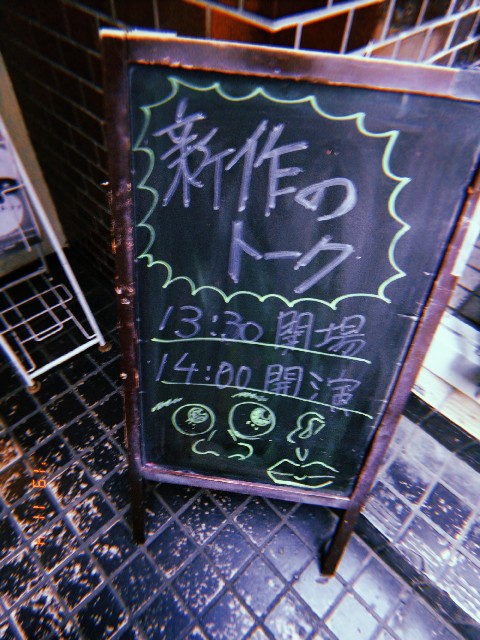 新作の
トーク
13:30 開場
14:00 開演